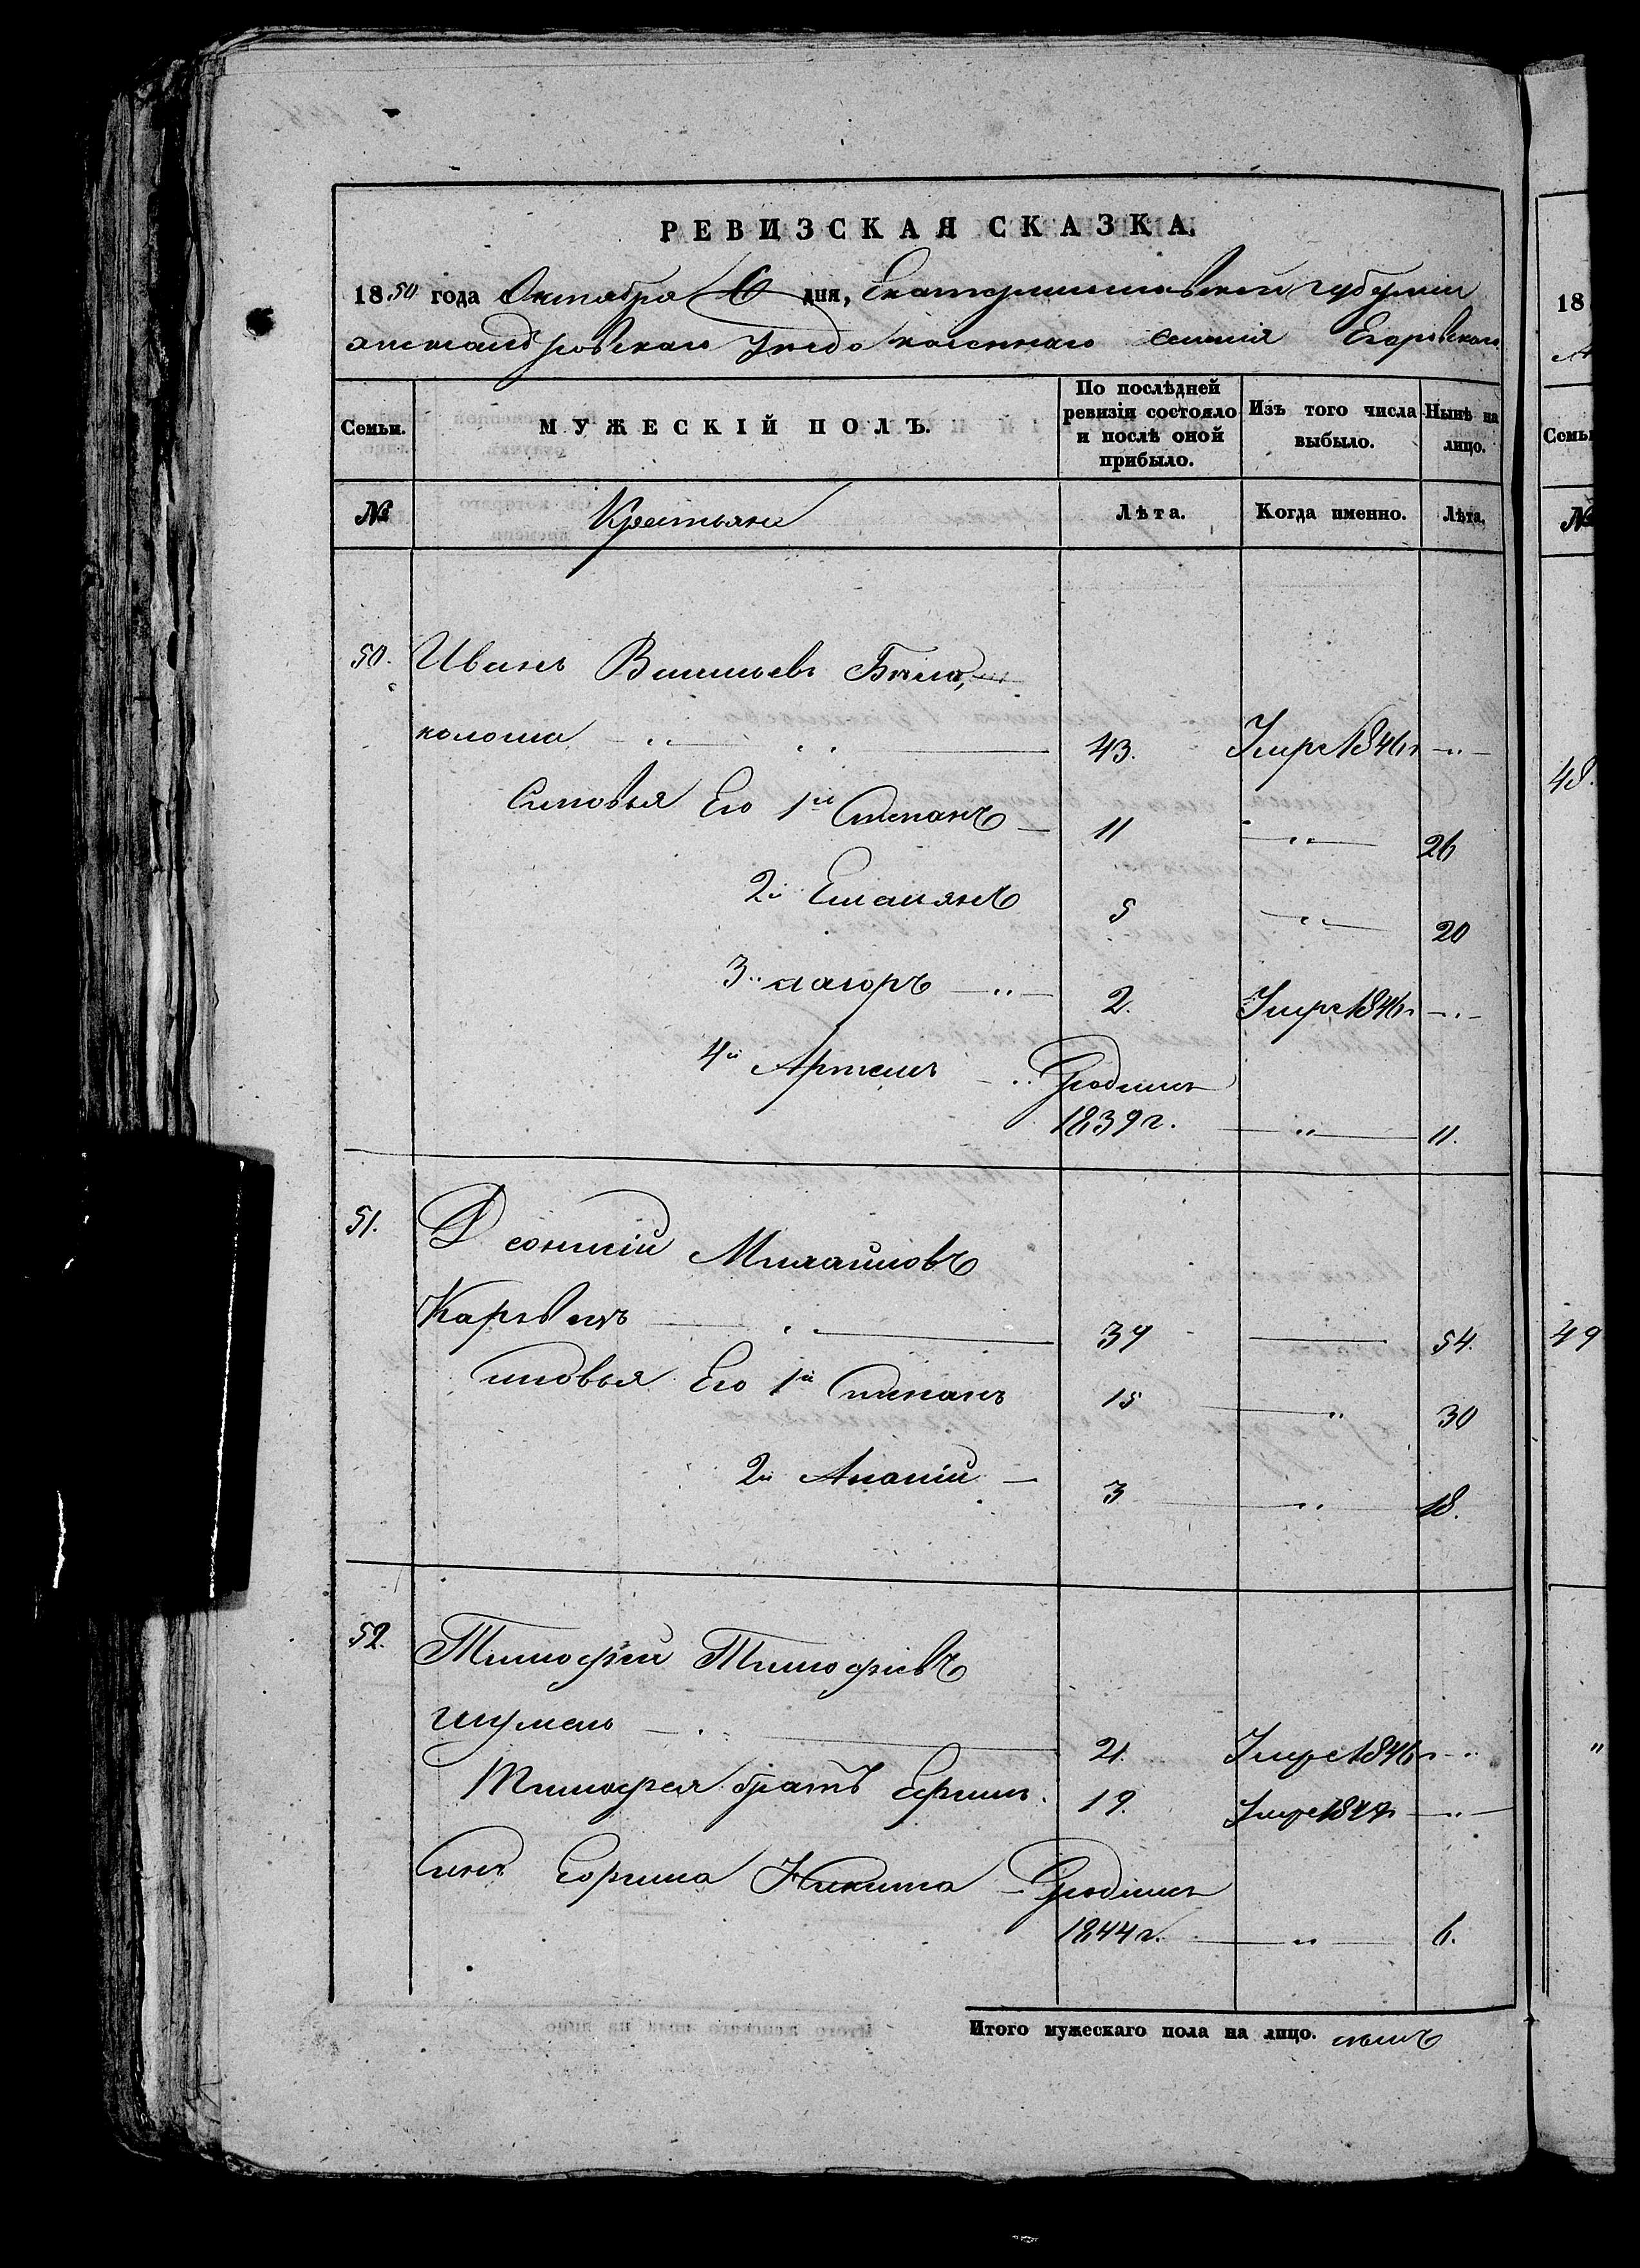 РЕВИЗСКАЯ СКАЗКА.
1850 года Октября 6 дня, Екатеринославской губернии
александровскаго уезда казеннаго селения Егоровскаго
Семьи. МУЖЕСКІЙ ПОЛЪ. По послѣдней ревизіи состояло и послѣ оной прибыло. Изъ того числа выбыло. Нынѣ на лицо.
№ Крестьяне Лѣта. Когда именно. Лѣта.
50. Иванъ Васильевъ Бѣло,
колоша 43. Умре 1846г
Сыновья Его 1й Степанъ 11 26
2й Емалянъ 5 20
3й 2. Умре 1846г
4й Артемъ родился
1839г. 11.
51. Леонтій Михайловъ
39 54.
сыновья Его 1й Степанъ 15 30
2й Ананій 3 18.
52. Тимофей Тимофѣевъ
Шумель 21. Умре 1846г
Тимофея братъ Ефимъ. 19. Умре 1847г
Сынъ Ефима Никита родился
1844г. 6.
Итого мужескаго пола на лицо. семь
18
Семьи
№
48.
49